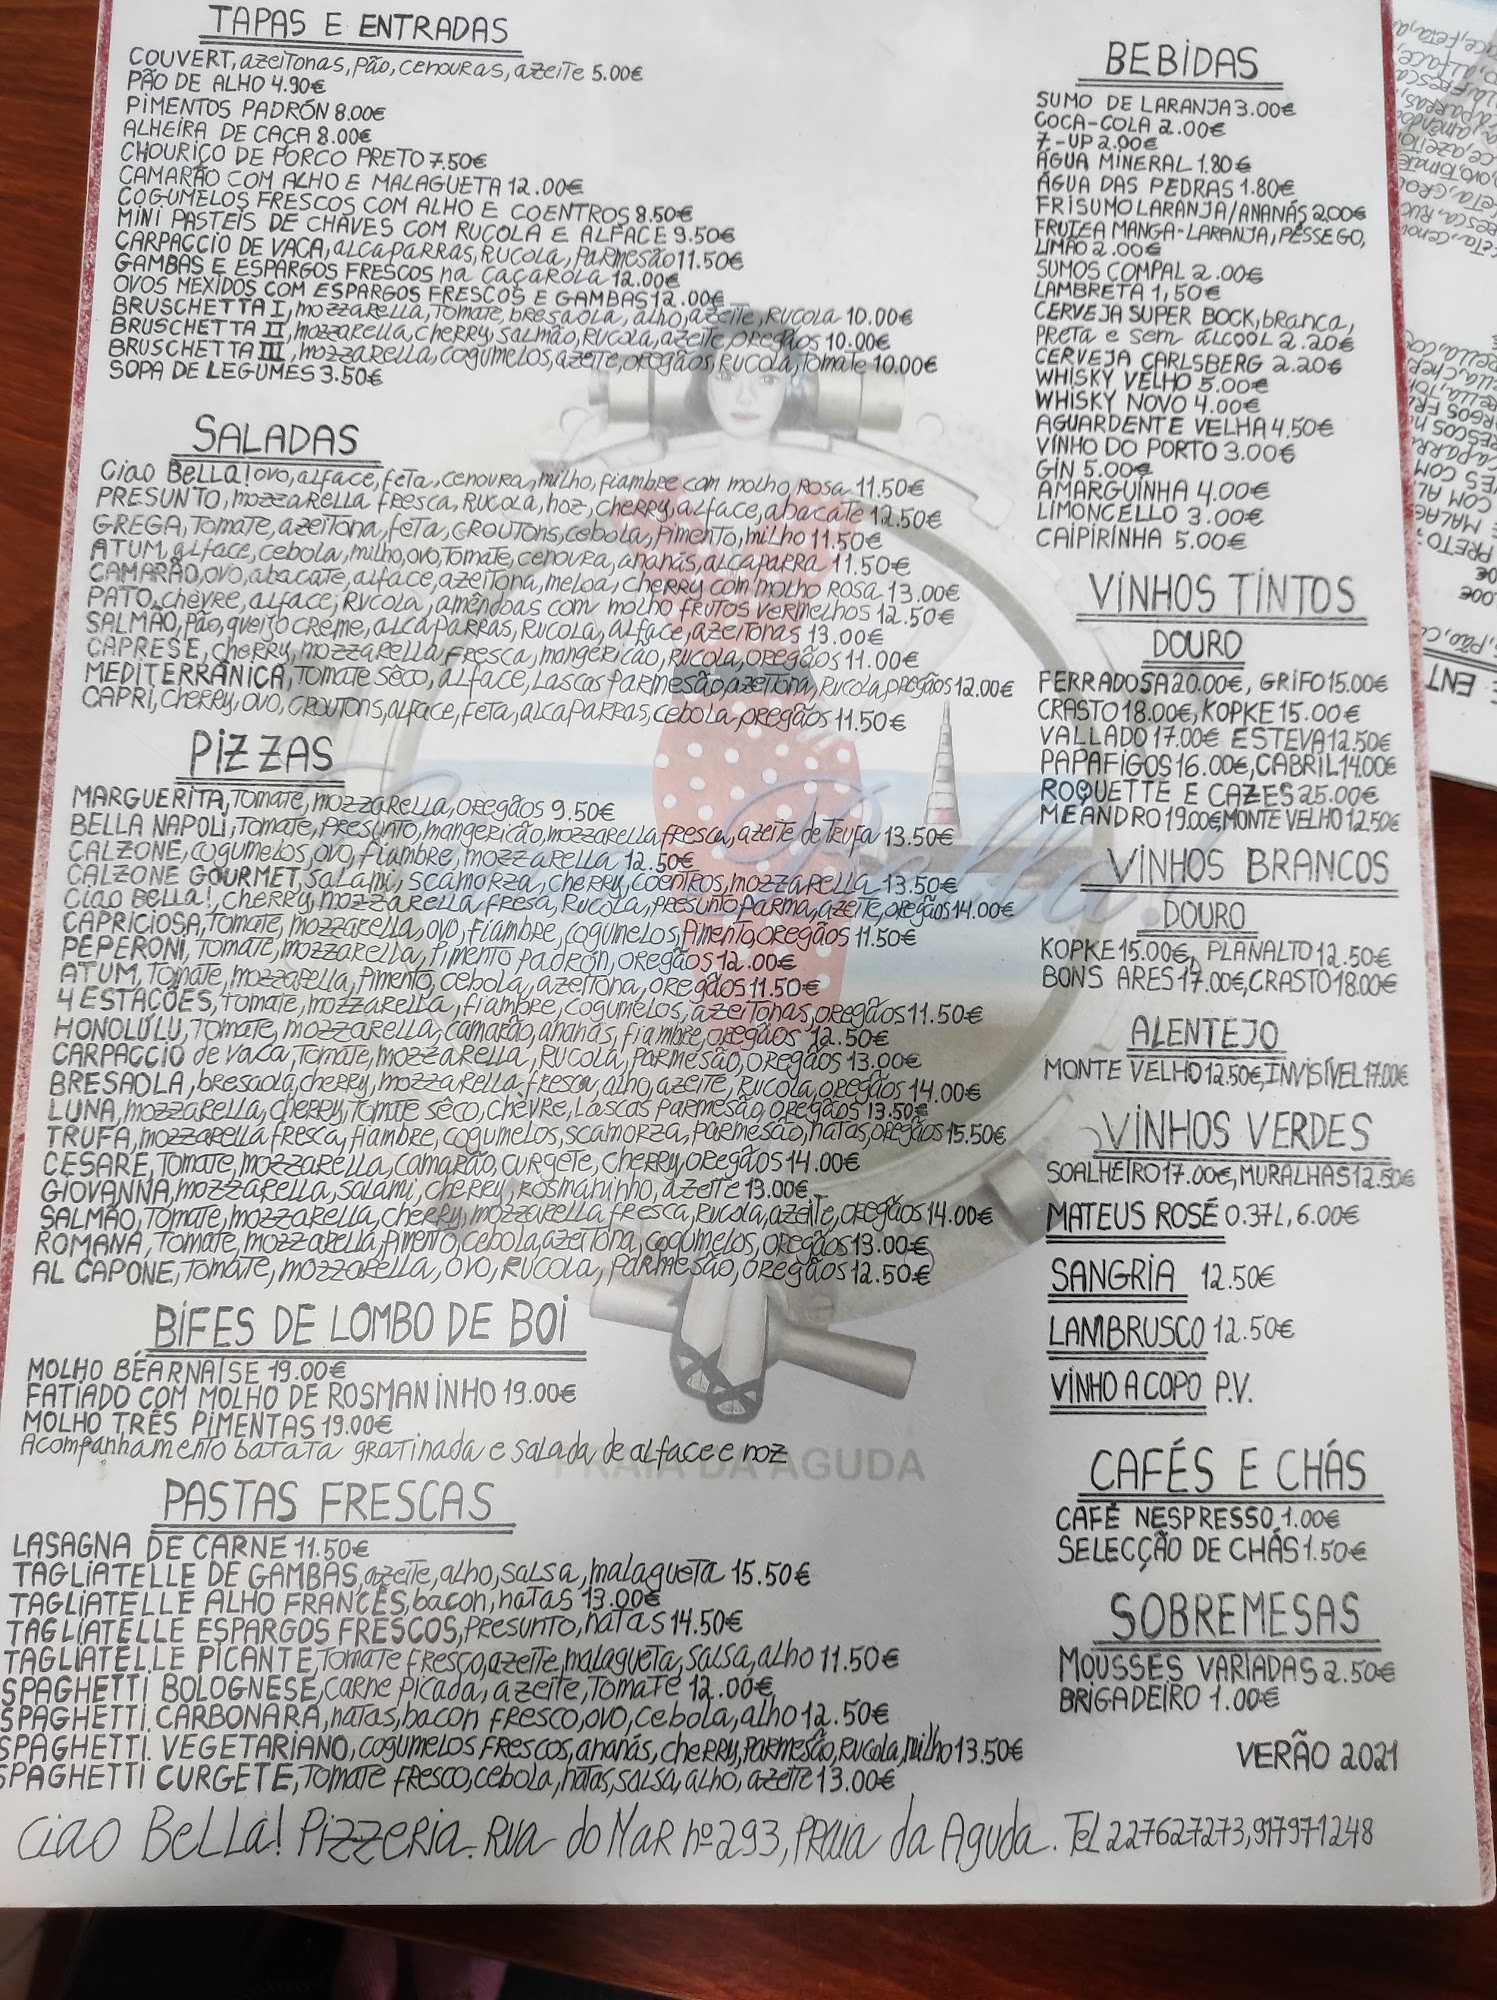 TAPAS E ENTRADAS
COUVERT, azeitonas, pão, cenouras, azeite 5.00€
PÃO DE ALHO 4.90€
PIMENTOS PADRÓN 8.00€
ALHEIRA DE CAÇA 8.00€
CHOURIÇO DE PORCO PRETO 7.50€
CAMARÃO COM ALHO E MALAGUETA 12.00€
COGUMELOS FRESCOS COM ALHO E COENTROS 8.50€
MINI PASTEIS DE CHAVES COM RUCOLA E ALFACE 9.50€
CARPACCIO DE VACA, alcaparras, rucola, parmesão 11.50€
GAMBAS E ESPARGOS FRESCOS na CAÇAROLA 12.00€
OVOS MEXIDOS COM ESPARGOS FRESCOS E GAMBAS 12.00€
BRUSCHETTA I, mozzarella, tomate, bresaola, alho, azeite, rucola 10.00€
BRUSCHETTA II, mozzarella, cherry, salmão, rucola, azeite, oregãos 10.00€
BRUSCHETTA III, mozzarella, cogumelos, azeite, oregãos, rucola, tomate 10.00€
SOPA DE LEGUMES 3.50€
SALADAS
Ciao Bella! ovo, alface, feta, cenoura, milho, fiambre com molho rosa 11.50€
PRESUNTO, mozzarella fresca, rucola, noz, cherry, alface, abacate 12.50€
GREGA, tomate, azeitona, feta, croutons, cebola, pimento, milho 11.50€
ATUM, alface, cebola, milho, ovo, tomate, cenoura, ananás, alcaparra 11.50€
CAMARÃO, ovo, abacate, alface, azeitona, meloa, cherry com molho rosa 13.00€
PATO, chèvre, alface, rucola, amêndoas com molho frutos vermelhos 12.50€
SALMÃO, pão, queijo creme, alcaparras, rucola, alface, azeitonas 13.00€
CAPRESE, cherry, mozzarella fresca, mangericão, rucola, oregãos 11.00€
MEDITERRÂNICA, tomate sêco, alface, lascas parmesão, azeitona, rucola, oregãos 12.00€
CAPRI, cherry, ovo, croutons, alface, feta, alcaparras, cebola, oregãos 11.50€
PIZZAS
MARGUERITA, tomate, mozzarella, oregãos 9.50€
BELLA NAPOLI, tomate, presunto, mangericão, mozzarella fresca, azeite de trufa 13.50€
CALZONE, cogumelos, ovo, fiambre, mozzarella 12.50€
CALZONE GOURMET, salami, scamorza, cherry, coentros, mozzarella 13.50€
Ciao Bella!, cherry, mozzarella fresa, rucola, presunto parma, azeite, oregãos 14.00€
CAPRICIOSA, tomate, mozzarella, ovo, fiambre, cogumelos, pimento, oregãos 11.50€
PEPERONI, tomate, mozzarella, pimento padrón, oregãos 12.00€
ATUM, tomate, mozzarella, pimento, cebola, azeitona, oregãos 11.50€
4 ESTAÇÕES, tomate, mozzarella, fiambre, cogumelos, azeitonas, oregãos 11.50€
HONOLULU, tomate, mozzarella, camarão, ananás, fiambre, oregãos 12.50€
CARPACCIO de vaca, tomate, mozzarella, rucola, parmesão, oregãos 13.00€
BRESAOLA, bresaola, cherry, mozzarella fresca, alho, azeite, rucola, oregãos 14.00€
LUNA, mozzarella, cherry, tomate sêco, chèvre, lascas parmesão, oregãos 13.50€
TRUFA, mozzarella fresca, fiambre, cogumelos, scamorza, parmesão, natas, oregãos 15.50€
CESARE, tomate, mozzarella, camarão, curgete, cherry, oregãos 14.00€
GIOVANNA, mozzarella, salami, cherry, rosmaninho, azeite 13.00€
SALMÃO, tomate, mozzarella, cherry, mozzarella fresca, rucola, azeite, oregãos 14.00€
ROMANA, tomate, mozzarella, pimento, cebola, azeitona, cogumelos, oregãos 13.00€
AL CAPONE, tomate, mozzarella, ovo, rucola, parmesão, oregãos 12.50€
BIFES DE LOMBO DE BOI
MOLHO BÉARNAISE 19.00€
FATIADO COM MOLHO DE ROSMANINHO 19.00€
MOLHO TRÊS PIMENTAS 19.00€
Acompanhamento batata gratinada e salada de alface e noz
PRAIA DA AGUDA
PASTAS FRESCAS
LASAGNA DE CARNE 11.50€
TAGLIATELLE DE GAMBAS, azeite, alho, salsa, malagueta 15.50€
TAGLIATELLE ALHO FRANCÊS, bacon, natas 13.00€
TAGLIATELLE ESPARGOS FRESCOS, presunto, natas 14.50€
TAGLIATELLE PICANTE, tomate fresco, azeite, malagueta, salsa, alho 11.50€
SPAGHETTI BOLOGNESE, carne picada, azeite, tomate 12.00€
SPAGHETTI CARBONARA, natas, bacon fresco, ovo, cebola, alho 12.50€
SPAGHETTI VEGETARIANO, cogumelos frescos, ananás, cherry, parmesão, rucola, milho 13.50€
SPAGHETTI CURGETE, tomate fresco, cebola, natas, salsa, alho, azeite 13.00€
BEBIDAS
SUMO DE LARANJA 3.00€
COCA-COLA 2.00€
7-UP 2.00€
ÁGUA MINERAL 1.80€
ÁGUA DAS PEDRAS 1.80€
FRISUMO LARANJA/ANANÁS 2,00€
FRUTEA MANGA-LARANJA, PÊSSEGO,
LIMÃO 2.00€
SUMOS COMPAL 2.00€
LAMBRETA 1,50€
CERVEJA SUPER BOCK, branca,
preta e sem álcool 2.20€
CERVEJA CARLSBERG 2.20€
WHISKY VELHO 5.00€
WHISKY NOVO 4.00€
AGUARDENTE VELHA 4.50€
VINHO DO PORTO 3.00€
GIN 5.00€
AMARGUINHA 4.00€
LIMONCELLO 3.00€
CAIPIRINHA 5.00€
VINHOS TINTOS
DOURO
FERRADOSA 20.00€, GRIFO 15.00€
CRASTO 18.00€, KOPKE 15.00€
VALLADO 17.00€ ESTEVA 12.50€
PAPAFIGOS 16.00€, CABRIL 14.00€
ROQUETTE E CAZES 25.00€
MEANDRO 19.00€, MONTE VELHO 12.50€
VINHOS BRANCOS
DOURO
KOPKE 15.00€, PLANALTO 12.50€
BONS ARES 17.00€, CRASTO 18.00€
ALENTEJO
MONTE VELHO 12.50€, INVISÍVEL 17.00€
VINHOS VERDES
SOALHEIRO 17.00€, MURALHAS 12.50€
MATEUS ROSÉ 0.37L, 6.00€
SANGRIA 12.50€
LAMBRUSCO 12.50€
VINHO A COPO P.V.
CAFÉS E CHÁS
CAFÉ NESPRESSO 1.00€
SELECÇÃO DE CHÁS 1.50€
SOBREMESAS
MOUSSES VARIADAS 2.50€
BRIGADEIRO 1.00€
VERÃO 2021
Ciao Bella! Pizzeria. Rua do Mar nº 293, Praia da Aguda. Tel 227627273, 917971248